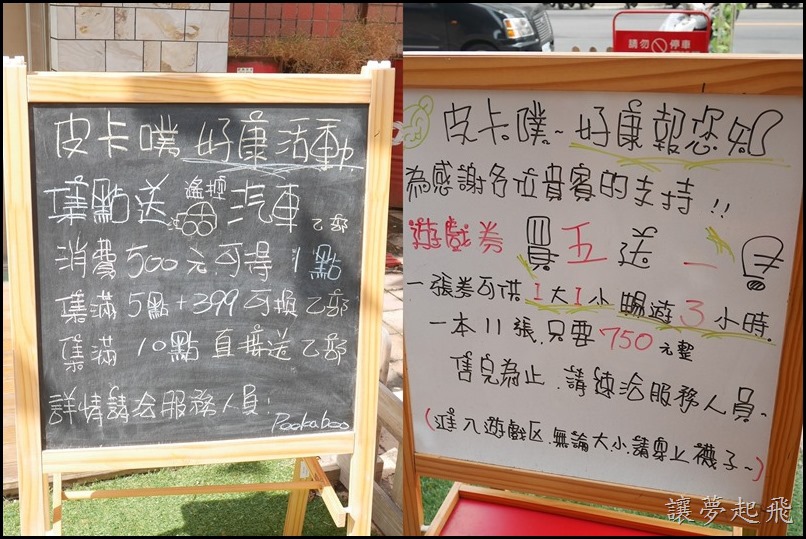 皮卡噗 好康活動
集點送 遙控汽車 乙部
消費500元可得1點
集滿5點+399可換乙部
集滿10點直接送乙部
詳情請洽服務人員!
Pookaboo
請勿 停車
皮卡噗~好康報您知
為感謝各位貴賓的支持!!
遊戲券 買五送一
一張券可供1大1小暢遊3小時.
一本11張.只要750元整
售完為止.請速洽服務人員~
(進入遊戲区.無論大小請穿上襪子~)
讓夢起飛